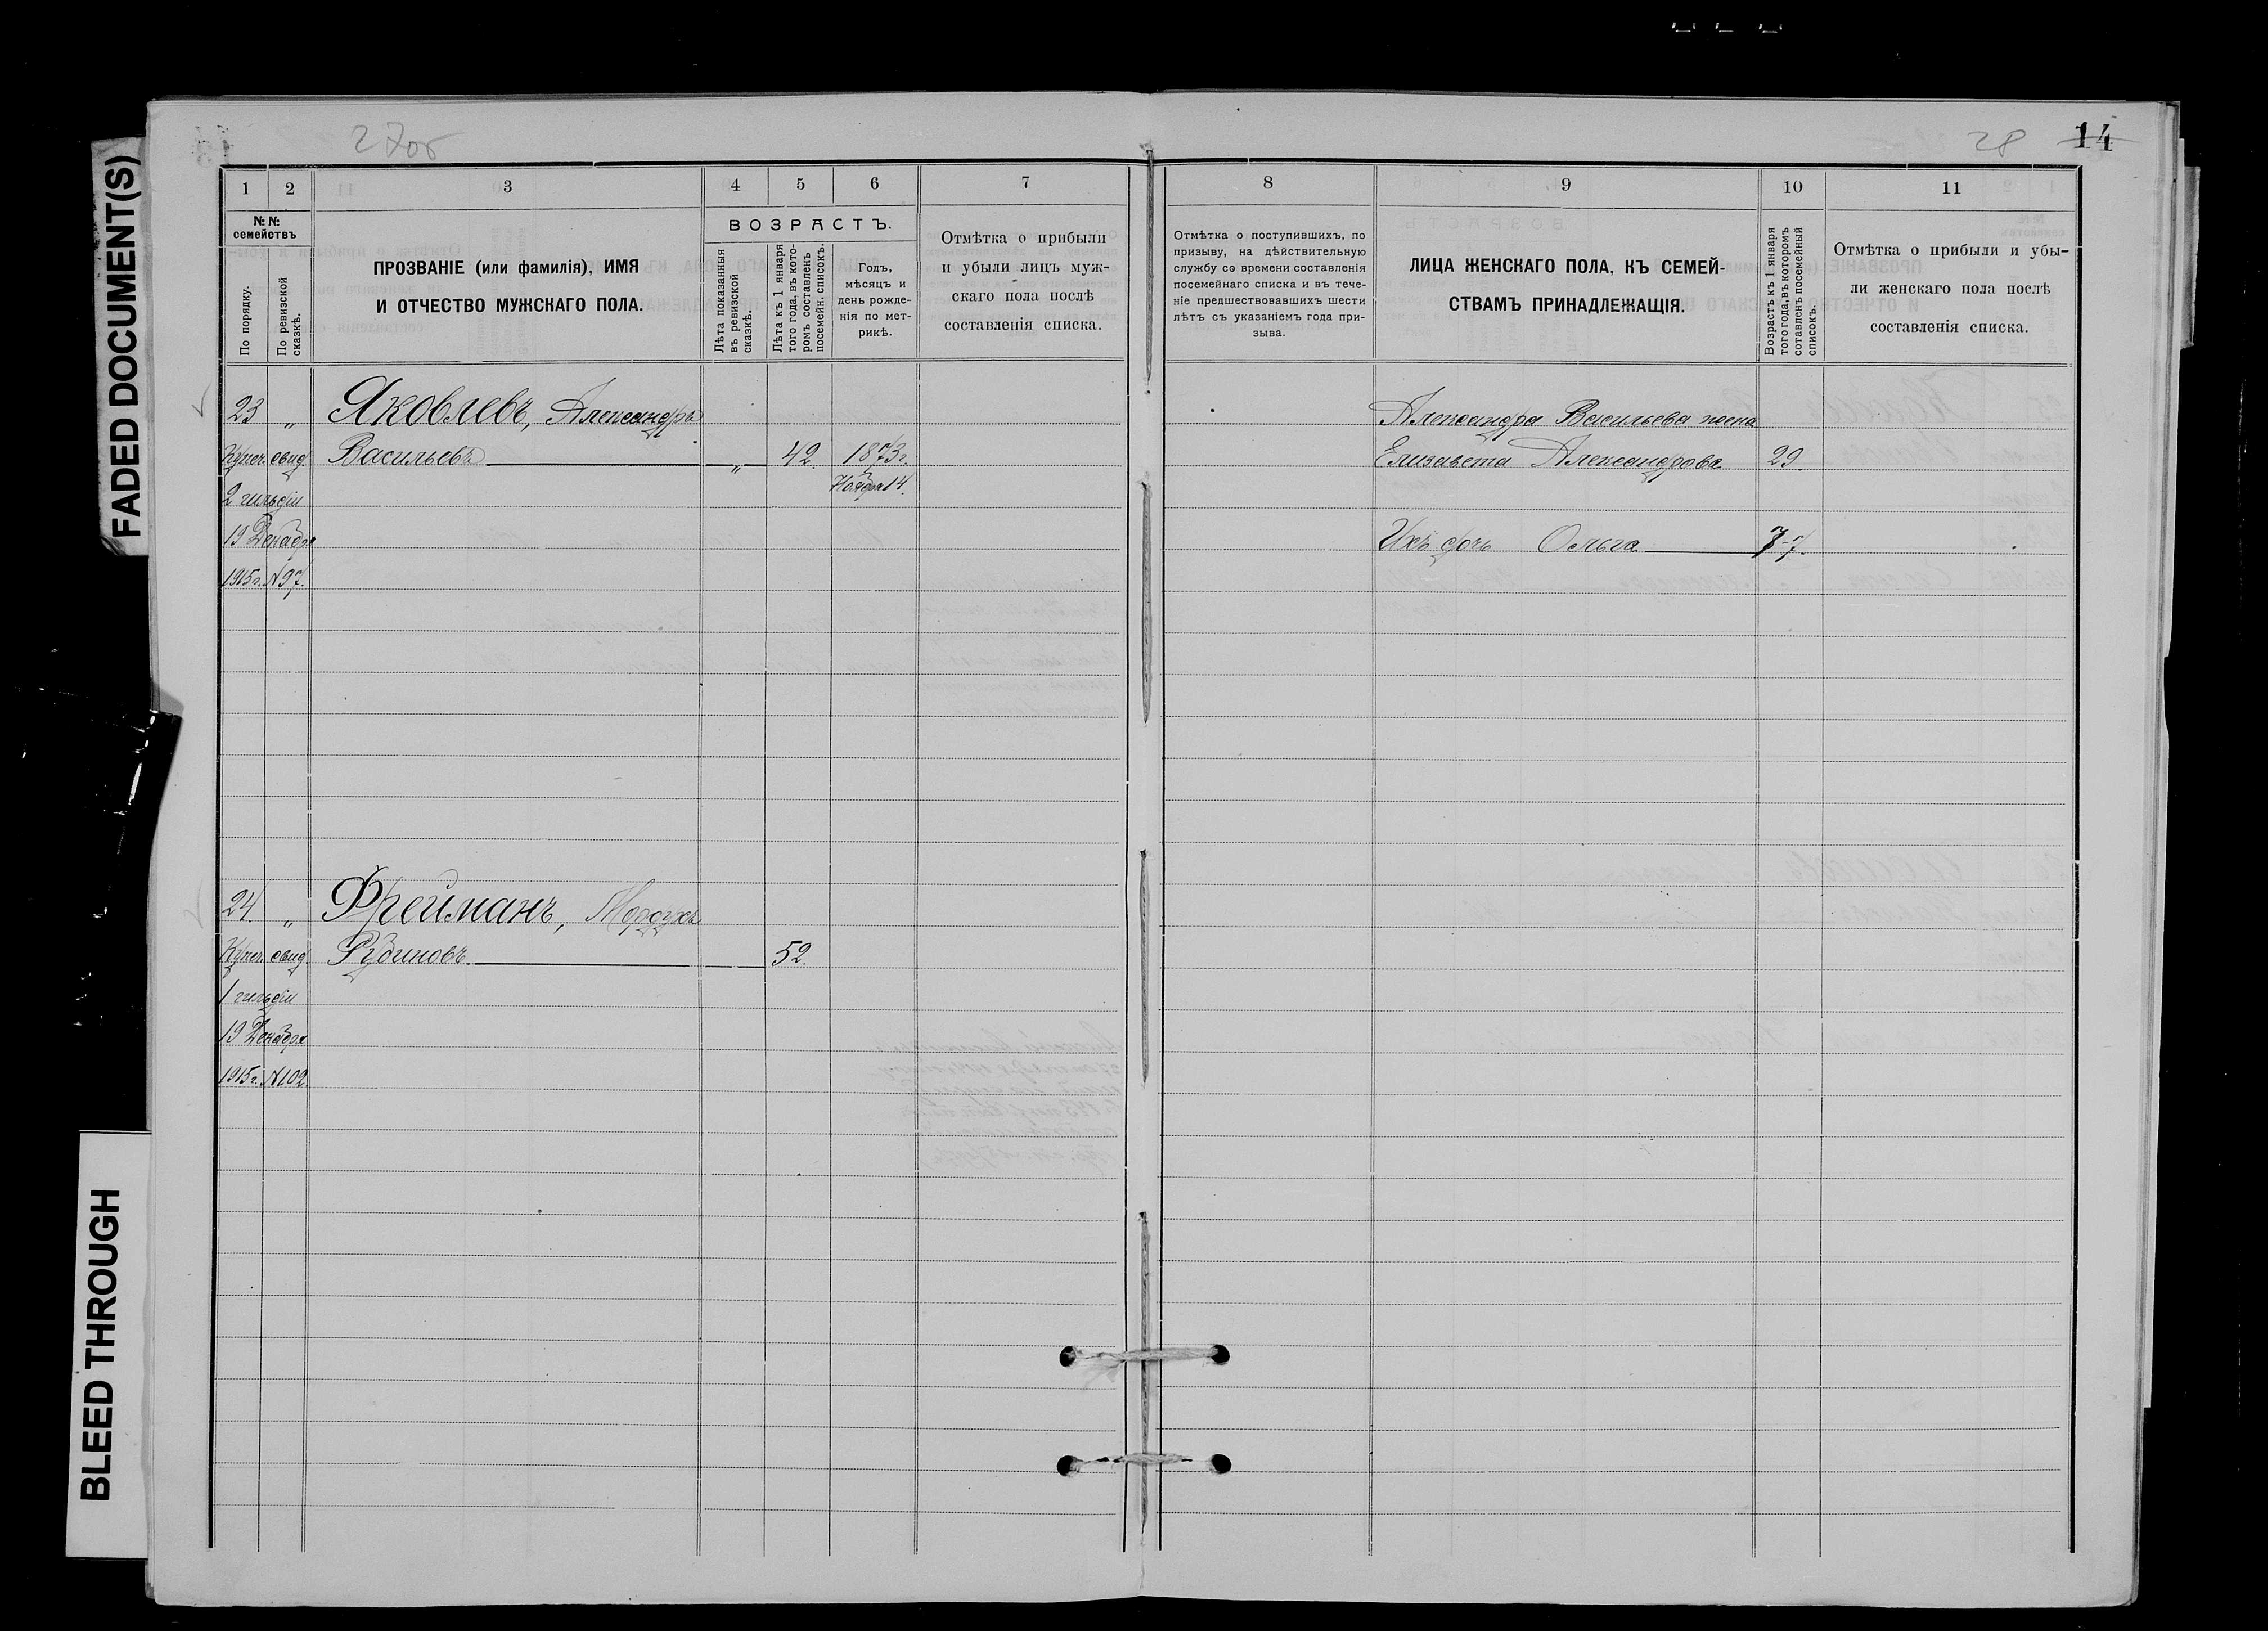 FADED DOCUMENT(S)
BLEED THROUGH
27об
28 14
1 2 3 4 5 6 7
№№ семействъ
По порядку.
По ревизской сказкѣ.
ПРОЗВАНІЕ (или фамилія), ИМЯ
И ОТЧЕСТВО МУЖСКАГО ПОЛА.
ВОЗРАСТЪ.
Лѣта показанныя въ ревизской сказкѣ.
Лѣта къ 1 января того года, въ кото-ромъ составленъ посемейн. списокъ.
Годъ,
мѣсяцъ и
день рожде-
нія по мет-
рикѣ.
Отмѣтка о прибыли
и убыли лицъ муж-
скаго пола послѣ
составленія списка.
8 9 10 11
Отмѣтка о поступившихъ, по
призыву, на дѣйствительную
службу со времени составленія
посемейнаго списка и въ тече-
ніе предшествовавшихъ шести
лѣтъ съ указаніемъ года при-
зыва.
ЛИЦА ЖЕНСКАГО ПОЛА, КЪ СЕМЕЙ-
СТВАМЪ ПРИНАДЛЕЖАЩІЯ.
Возрастъ къ 1 января
того года, въ которомъ
сотавленъ посемейный
списокъ.
Отмѣтка о прибыли и убы-
ли женскаго пола послѣ
составленія списка.
23 „ Яковлевъ, Александръ
Купеч. свид. Васильевъ „ 42. 1873 г.
2 гильдіи Ноября 14.
19 Декабря
1915 г. № 97.
Александра Васильева жена
Елизавета Александрова 29.
Ихъ дочь Ольга 7-7.
24. „ Фрейманъ, Мордухъ
Купеч. свид. Рубиновъ 52.
1 гильдіи
19 Декабря
1915 г. № 102